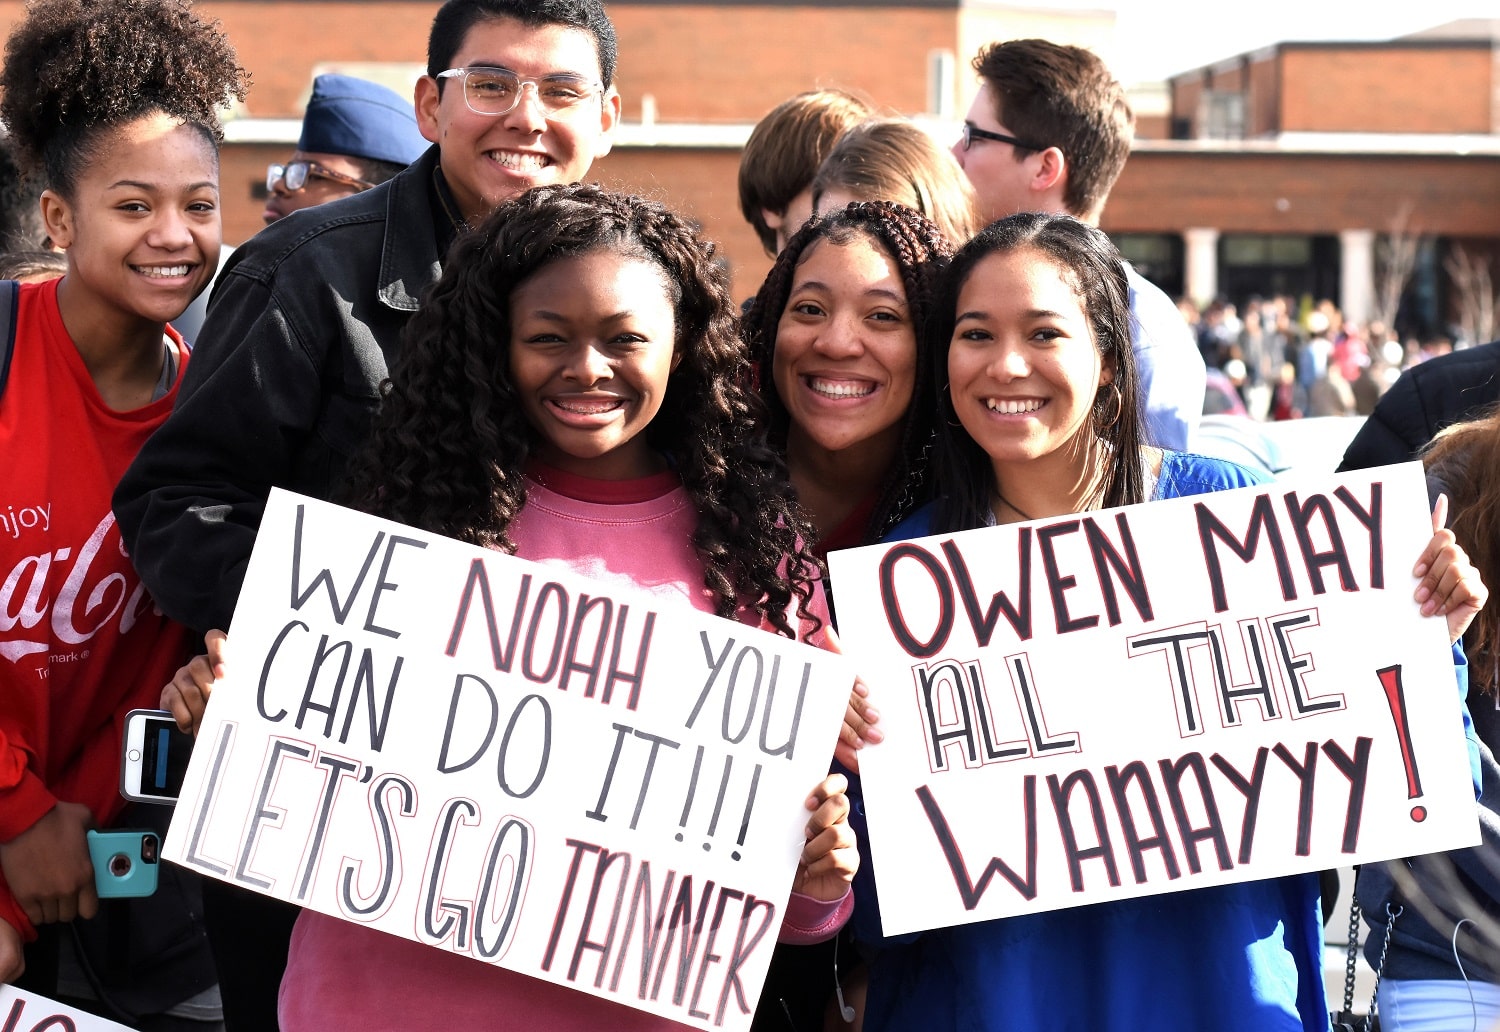 njoy
a-C
mark ®
Tr
WE NOAH YOU
CAN DO IT!!!
LET'S GO TANNER
OWEN MAY
ALL THE
WAAAYYY!